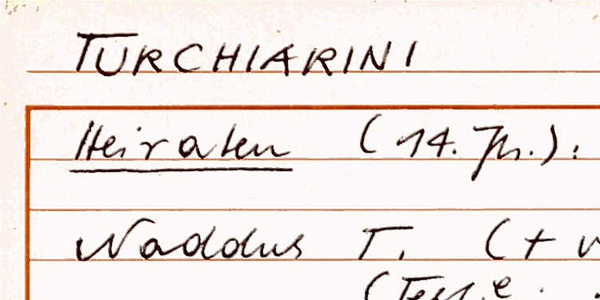 TURCHIARINI
Heiraten (14. Jh.):
Naddus T. (+